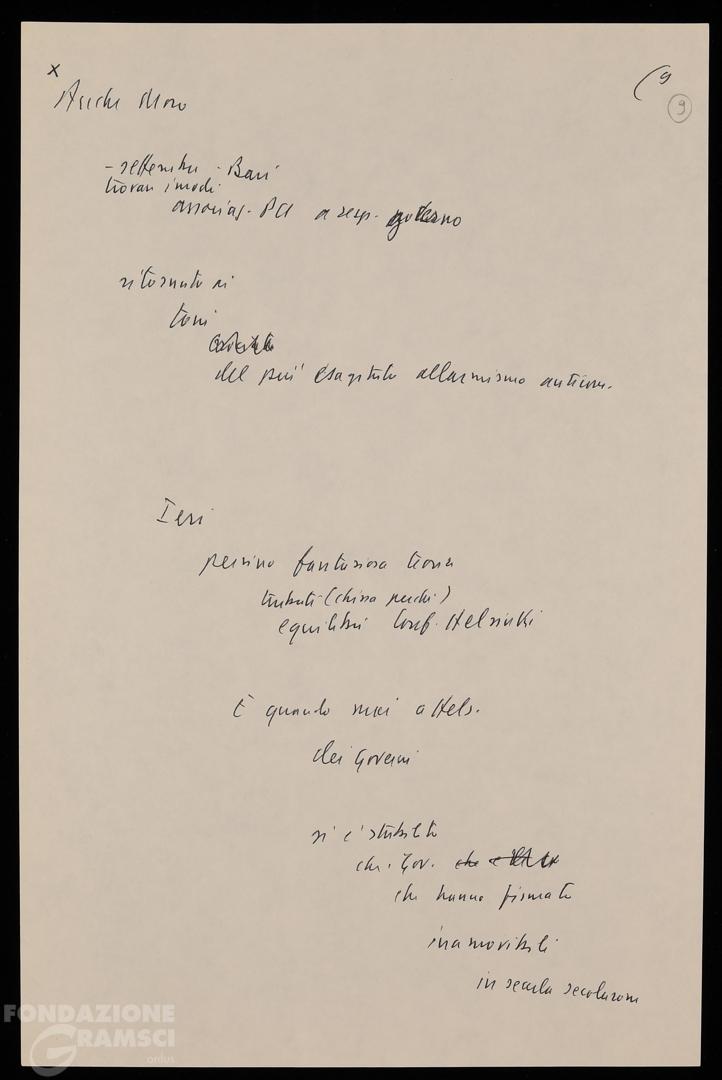 x
(9
9
Anche Moro
- settembre - Bari
trovar i modi
associaz. PCI a resp. governo
ritornato ai
toni
del più esagitato allarmismo anticom.
Ieri
persino fantasiosa teoria
turbati (chissà perché)
equilibri Conf. Helsinki
E quando mai a Hels.
dei governi
si è stabilito
che i Gov.
che hanno firmato
inamovibili
in secula seculorum
FONDAZIONE
GRAMSCI
onlus